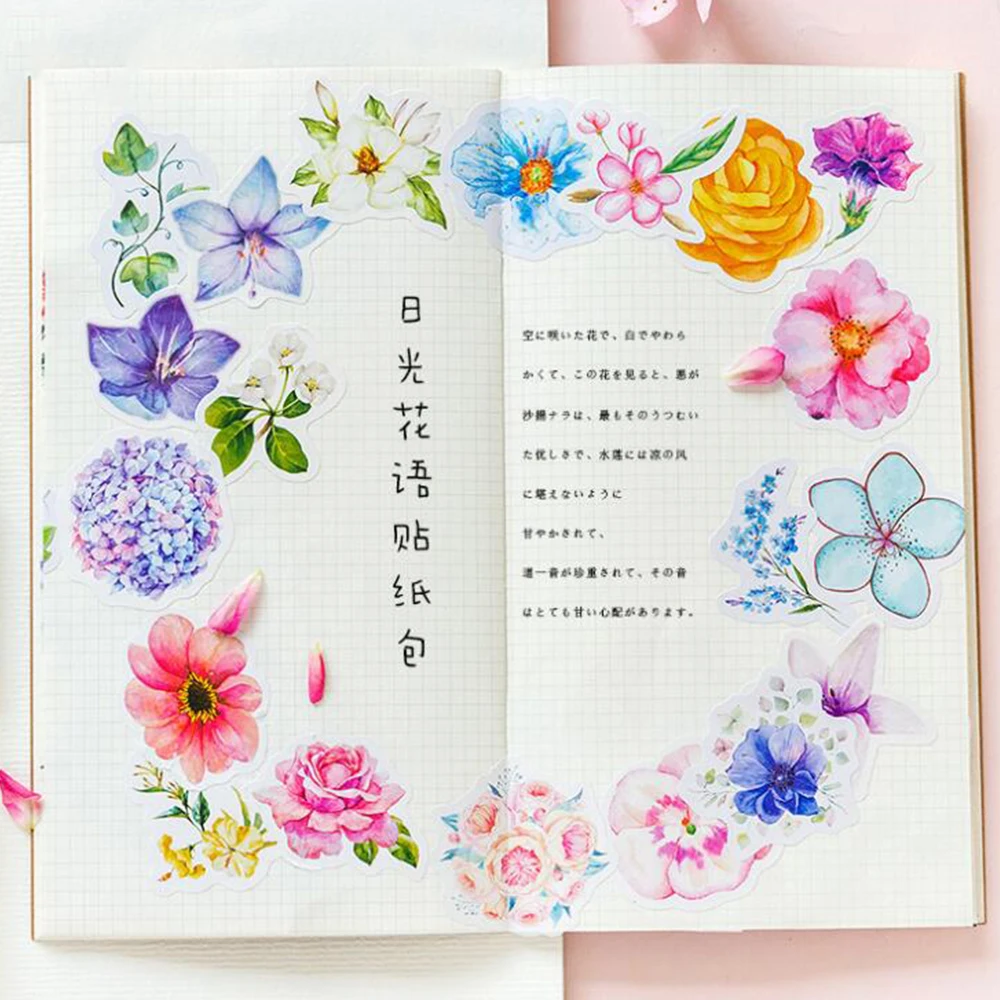 日光花语贴纸包
空に咲いた花で、白でやわら
かくて、この花を見ると、悪が
沙揚ナラは、最もそのうつむい
た优しさで、水蓮には凉の风
に堪えないように
甘やかされて、
道一音が珍重されて、その音
はとても甘い心配があります。